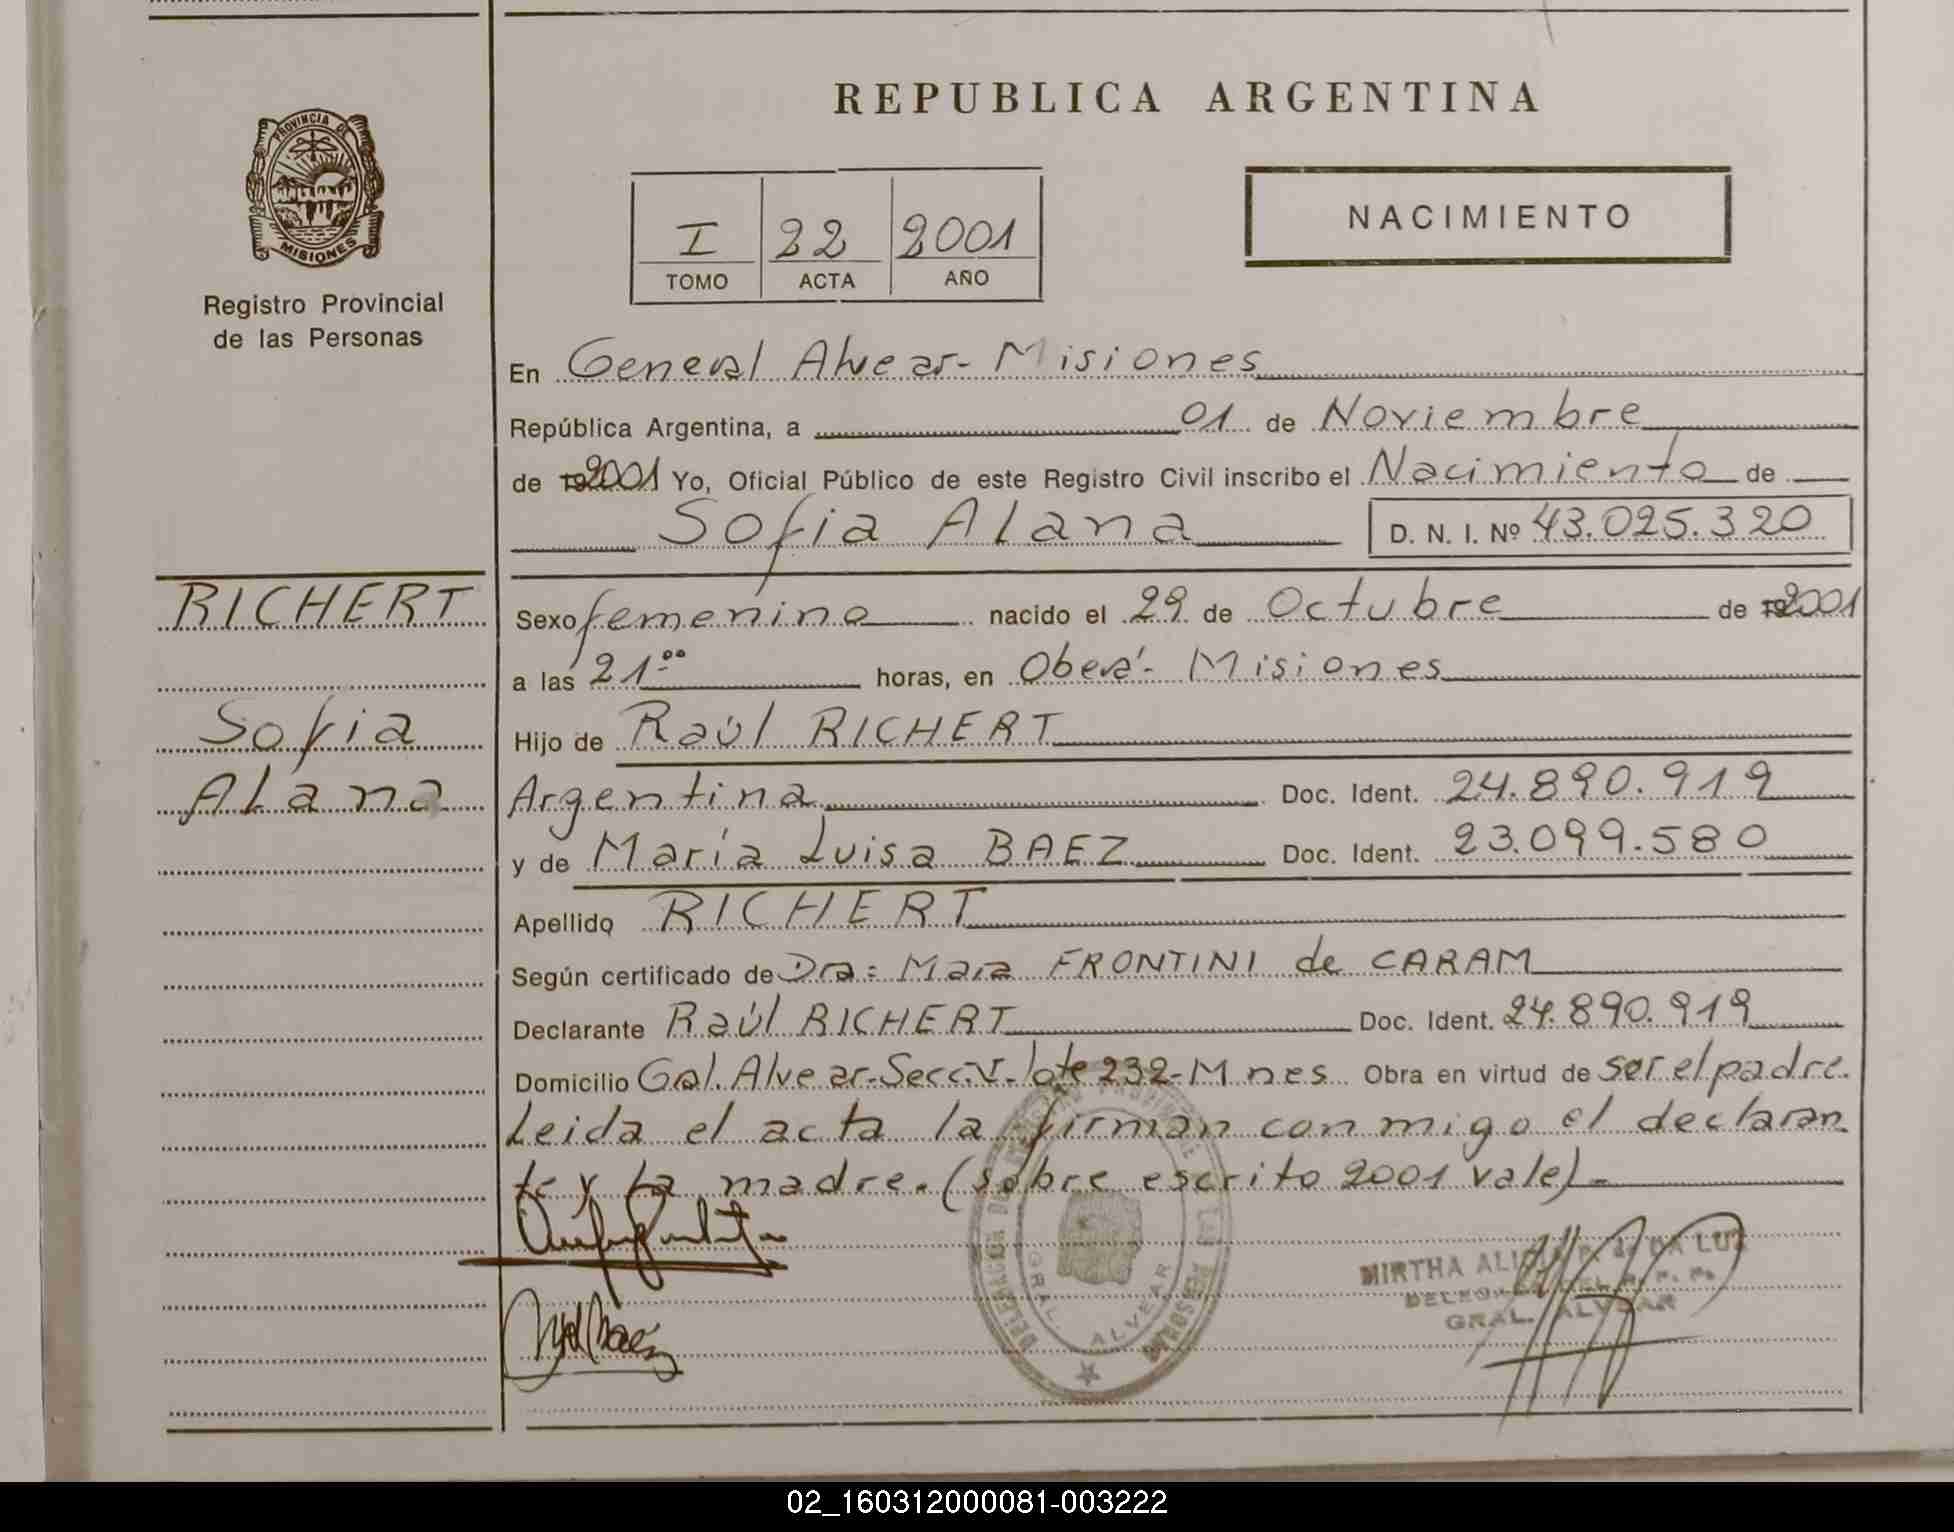 REPUBLICA ARGENTINA
PROVINCIA DE
MISIONES
Registro Provincial
de las Personas
I 22 2001
TOMO ACTA AÑO
NACIMIENTO
En General Alvear - Misiones
República Argentina, a 01 de Noviembre
de 2001 Yo, Oficial Público de este Registro Civil inscribo el Nacimiento de
Sofia Alana D. N. I. Nº 43.025.320
RICHERT
Sofia
Alana
Sexo femenino nacido el 29 de Octubre de 2001
a las 21 ºº horas, en Oberá - Misiones
Hijo de Raúl RICHERT
Argentina Doc. Ident. 24.890.919
y de María Luisa BAEZ Doc. Ident. 23.099.580
Apellido RICHERT
Según certificado de Dra: Mara FRONTINI de CARAM
Declarante Raúl RICHERT Doc. Ident. 24.890.919
Domicilio Gral. Alvear - Secc. V - lote 232 - Mnes Obra en virtud de ser el padre.
Leida el acta la firman conmigo el declaran
te y la madre. (sobre escrito 2001 vale) -
GRAL. ALVEAR
MIRTHA ALICIA P. de DA LUZ
DELEGADA DEL R. P. P.
GRAL. ALVEAR
02_160312000081-003222